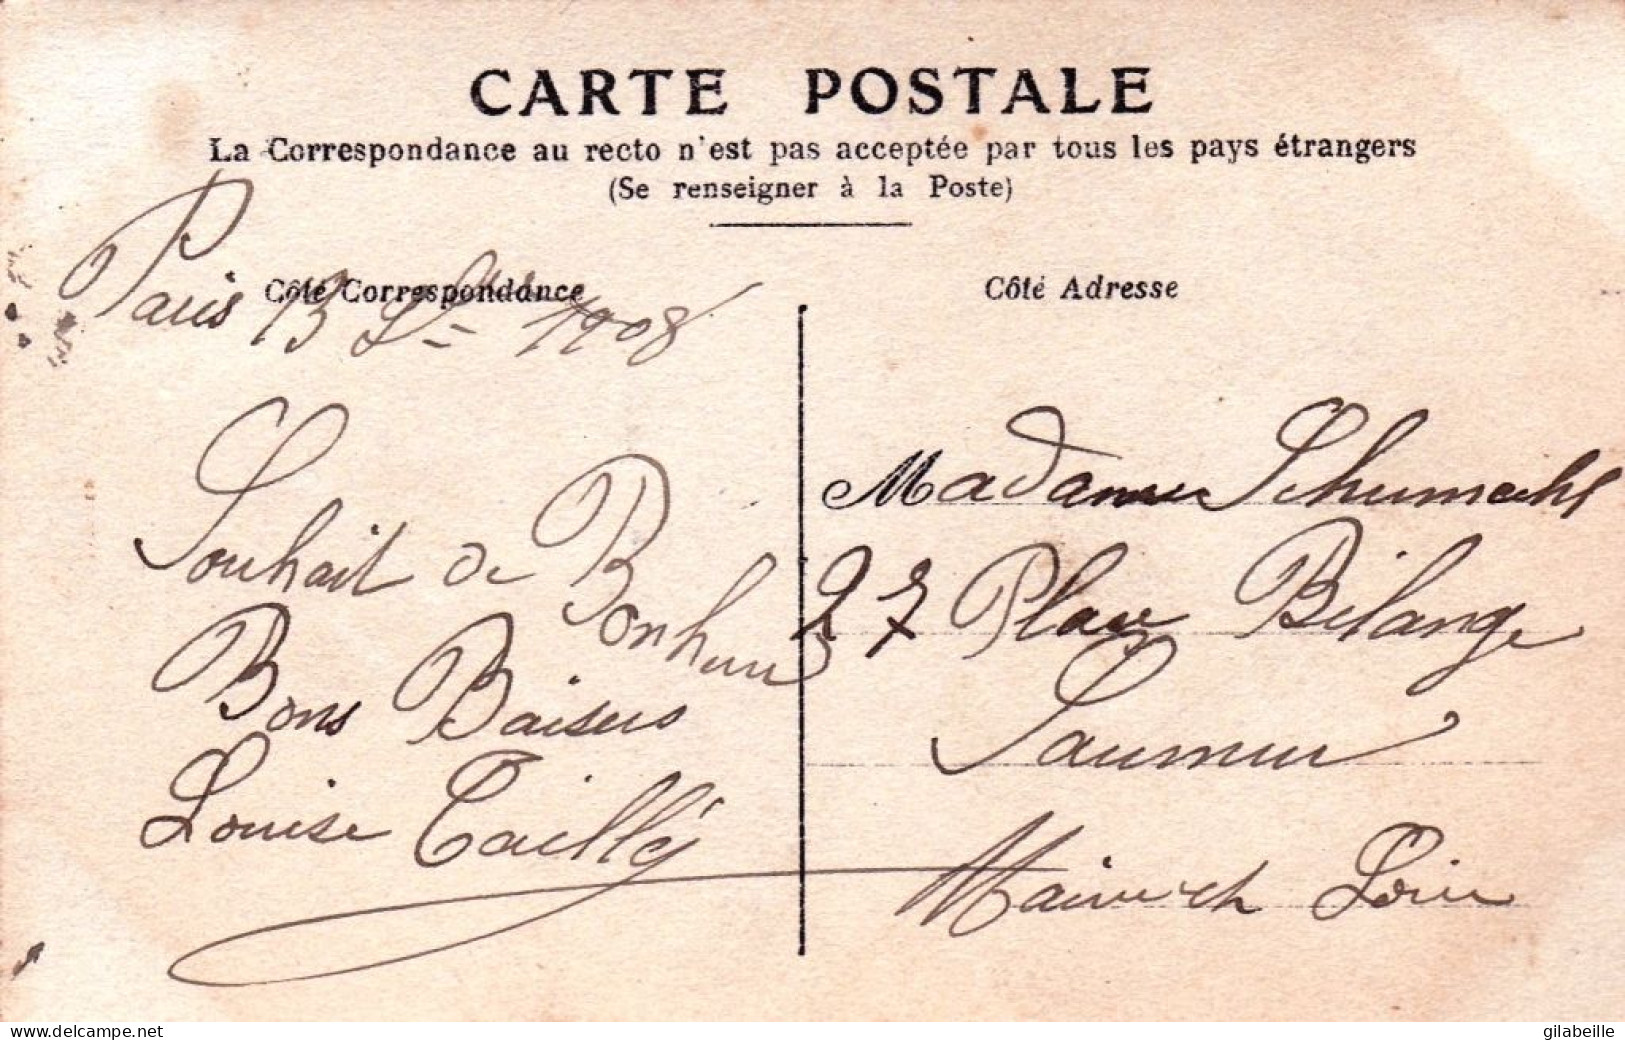 CARTE POSTALE
La Correspondance au recto n'est pas acceptée par tous les pays étrangers
(Se renseigner à la Poste)
Côté Correspondance
Paris 13 1908
Souhait de Bonheur
Bons Baisers
Louise Taillé
Côté Adresse
Madame
27 Place Bilange
Saumur
Maine et Loire
www.delcampe.net
gilabeille